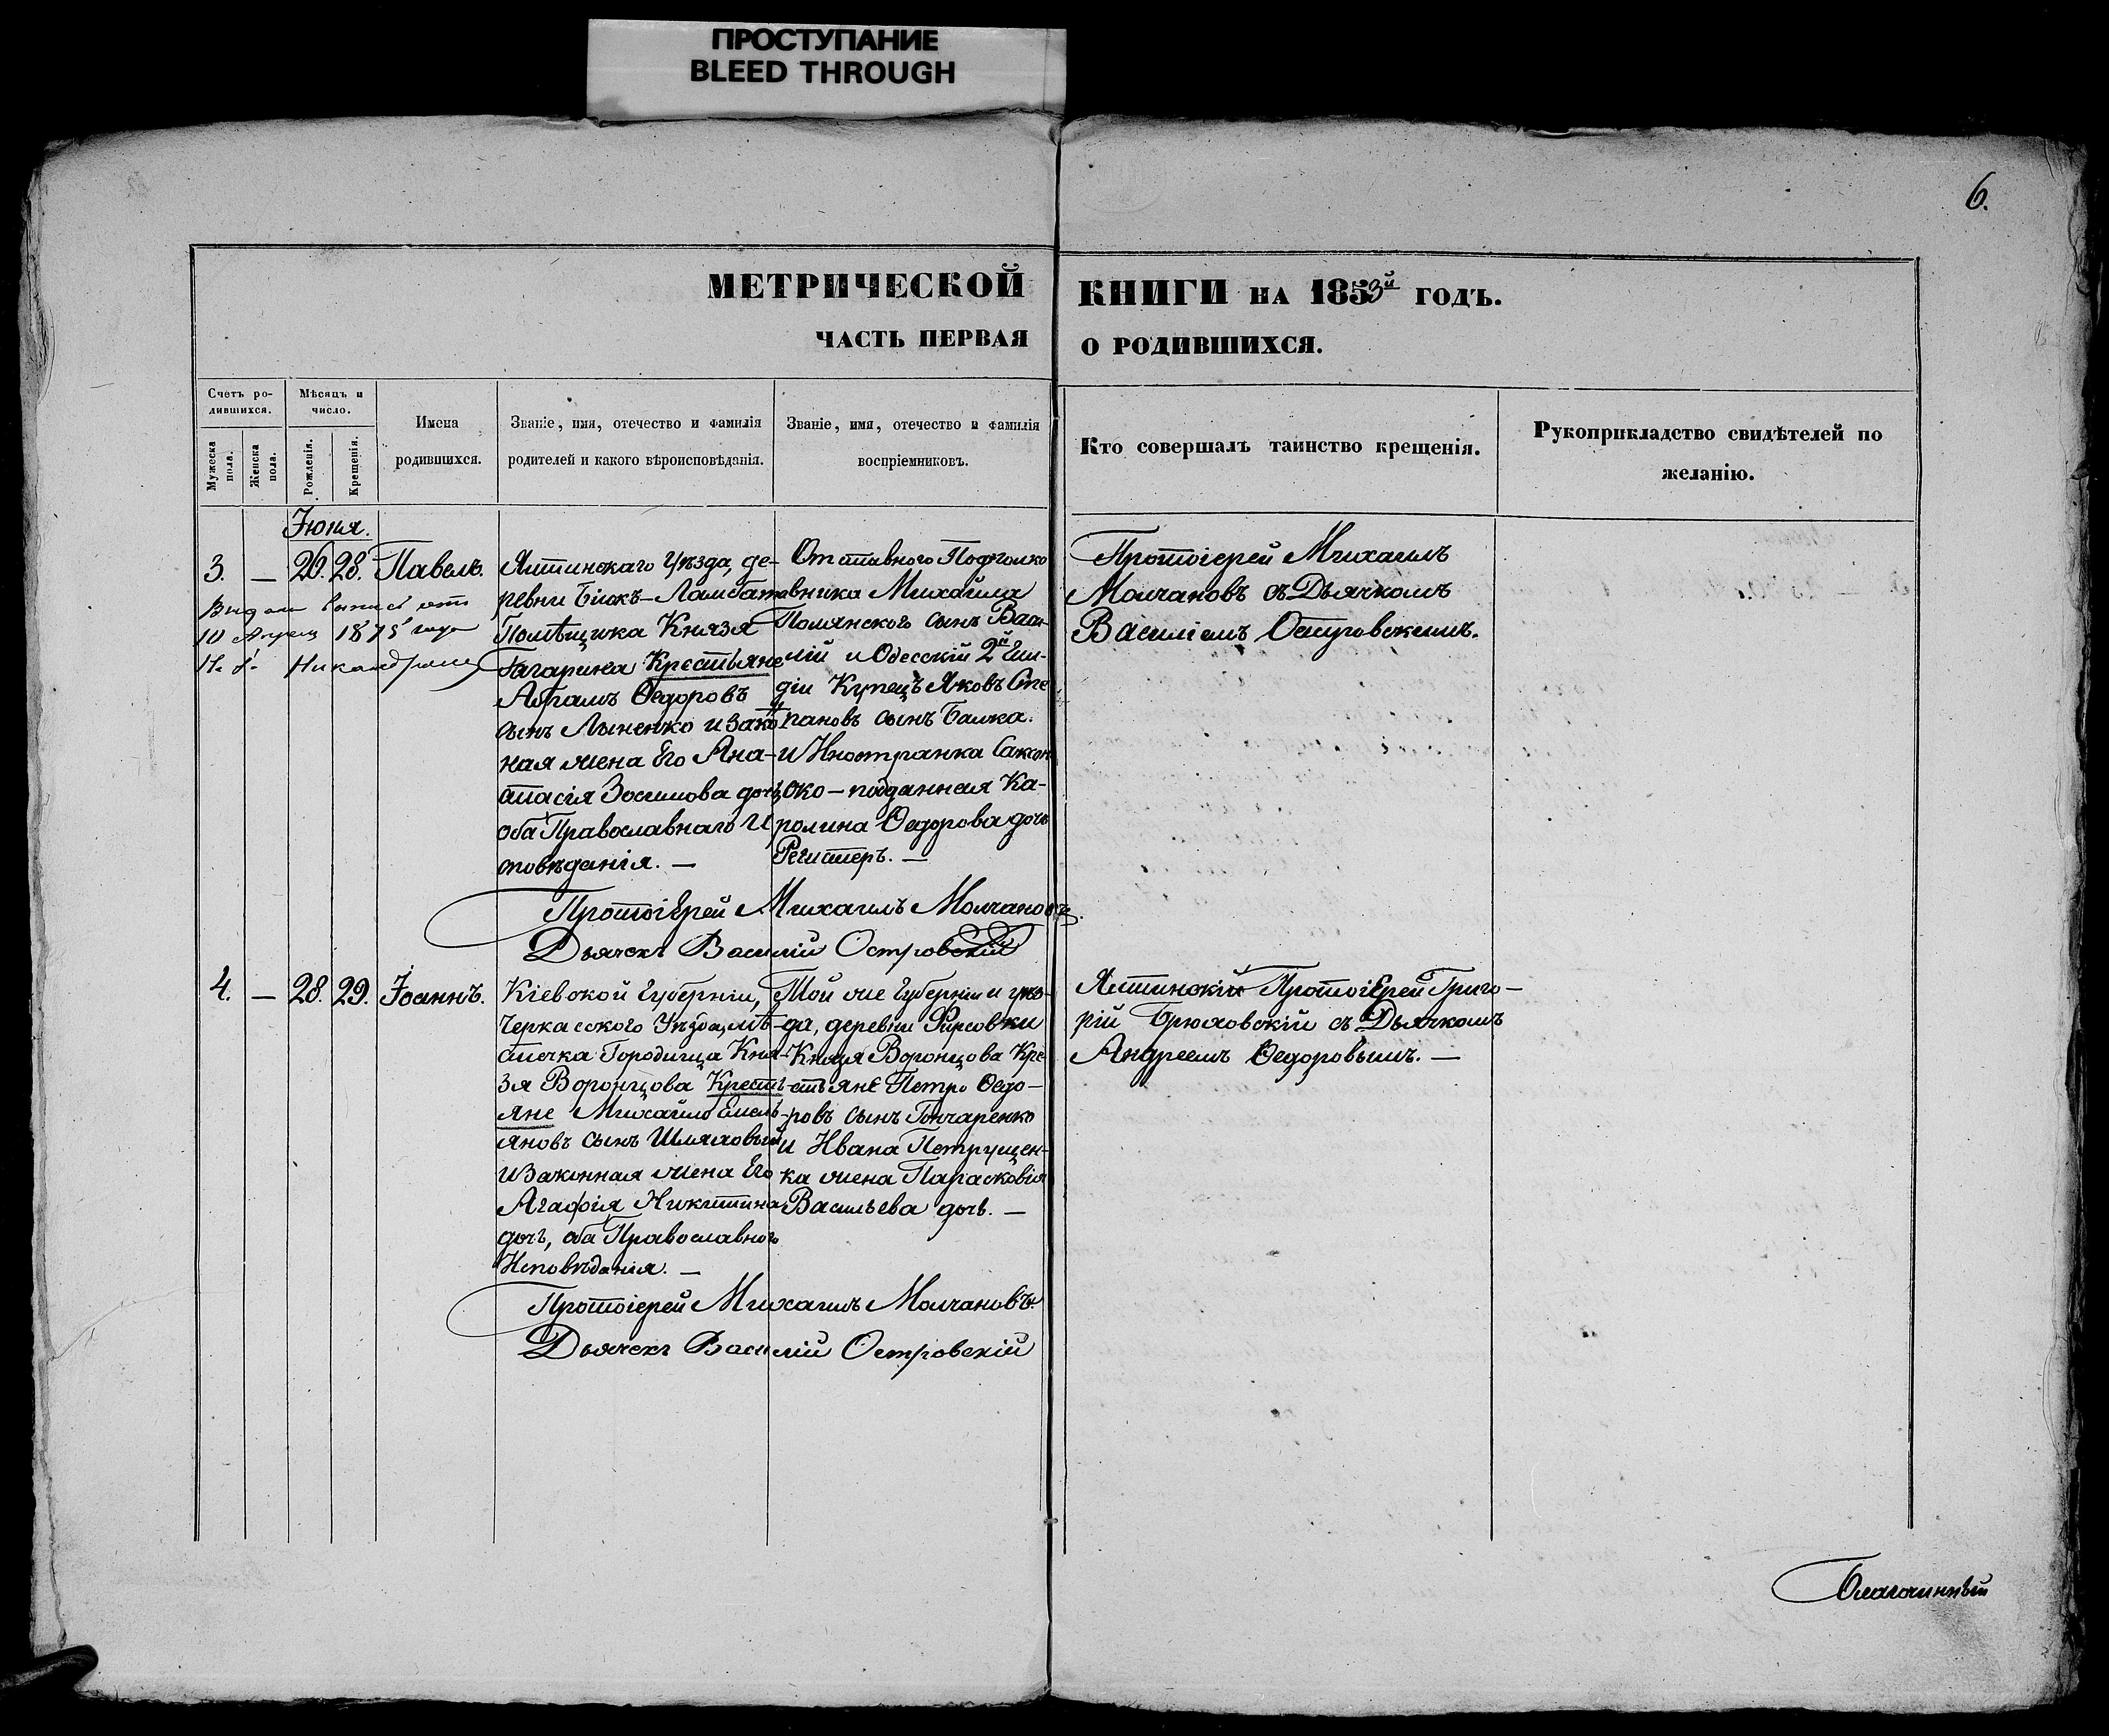 ПРОСТУПАНИЕ
BLEED THROUGH
6.
МЕТРИЧЕСКОЙ КНИГИ НА 1853й ГОДЪ.
ЧАСТЬ ПЕРВАЯ О РОДИВШИХСЯ.
Счетъ ро-
дившихся.
Мужеска пола.
Женска пола.
Мѣсяцъ и
число.
Рожденія.
Крещенія.
Имена
родившихся.
Званіе, имя, отечество и фамилія
родителей и какого вѣроисповѣданія.
Званіе, имя, отечество и фамилія
воспріемниковъ.
Кто совершалъ таинство крещенія.
Рукоприкладство свидѣтелей по
желанію.
Іюня.
3. — 26. 28. Павелъ.
10 Апреля 1875 года
Ялтинскаго Уѣзда, де-
ревни Біюкъ-Ламбата
Помѣщика Князя
Гагарина Крестьяне
Абрамъ Ѳедоровъ
сынъ Лыненко и закон
ная жена Его Ана-
стасія Зосимова дочь,
оба Православнаго И
сповѣданія. —
Отставного Подполко
вника Михайла
Полянского сынъ Васи
лій и Одесскій 2й Гил-
діи Купецъ Яковъ Сте
пановъ сынъ Балка.
и Иностранка Саксон
ско-подданная Ка-
ролина Ѳедорова дочь
Регистеръ. —
Протоіерей Михаилъ
Молчановъ съ Дьячкомъ
Василіемъ Островскимъ.
Протоіерей Михаилъ Молчановъ.
Дьячекъ Василій Островскій
4. — 28. 29. Іоаннъ.
Кіевской Губерніи,
Черкасского Уѣзда, мѣ-
стечка Городища Кня-
зя Воронцова Кресть-
яне Михайло Емель-
яновъ сынъ Шляховый
и Законная жена Его
Агафія Никитина
дочь, оба Православного
Исповѣданія. —
Той же Губерніи и уѣз-
да, деревни Фирсовки
Князя Воронцова Кре-
стьяне Петро Ѳедо-
ровъ сынъ Гончаренко
и Ивана Петрущен-
ка жена Парасковія
Васильева дочь. —
Ялтинскій Протоіерей Григо-
рій Брюховскій съ Дьячкомъ
Андреемъ Ѳедоровымъ. —
Протоіерей Михаилъ Молчановъ.
Дьячекъ Василій Островскій
Благочинный